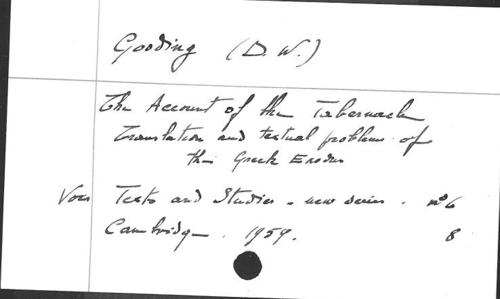 Gooding (D.W.)
The Account of the Tabernacle
Translation and textual problems of
the Greek Exodus
Voir Texts and Studies - new series . nº 6
Cambridge . 1959. 8